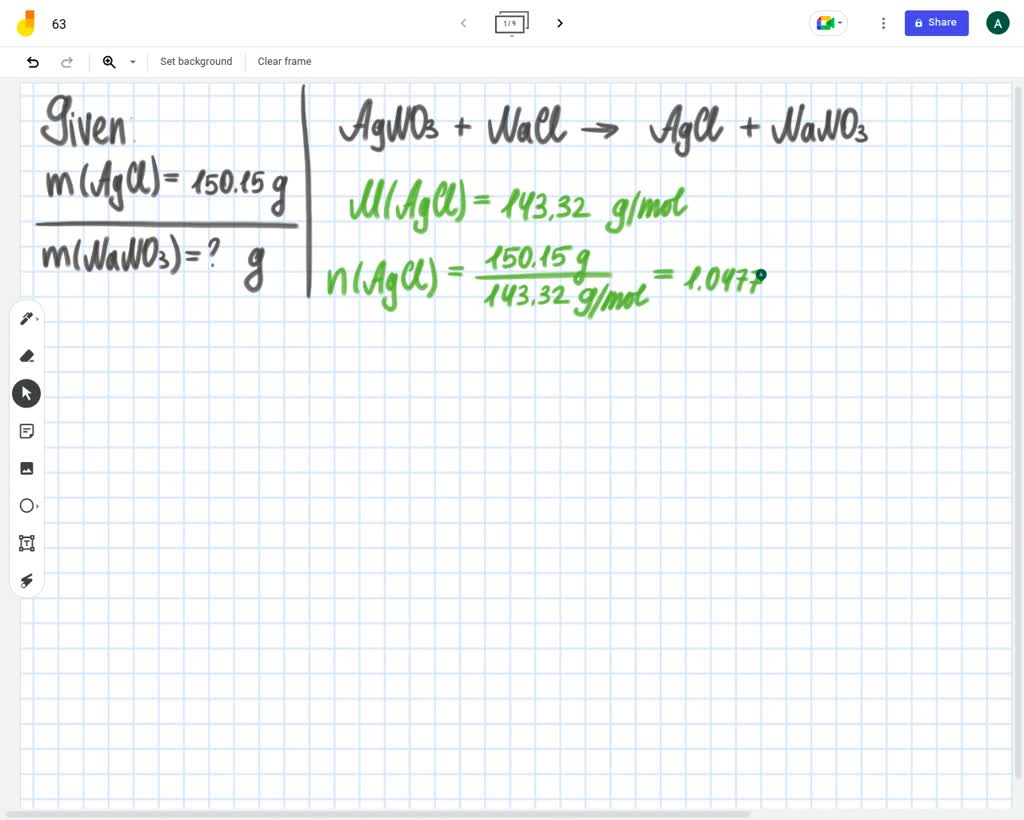 63
1/9
Share
A
Set background
Clear frame
Given:
m(AgCl)= 150.15 g
m(NaNO3)=? g
AgNO3 + NaCl → AgCl + NaNO3
M(AgCl) = 143,32 g/mol
n(AgCl) = 150.15 g / 143,32 g/mol = 1.0477